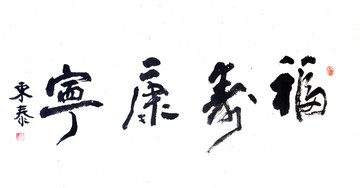 福壽康寧
東泰